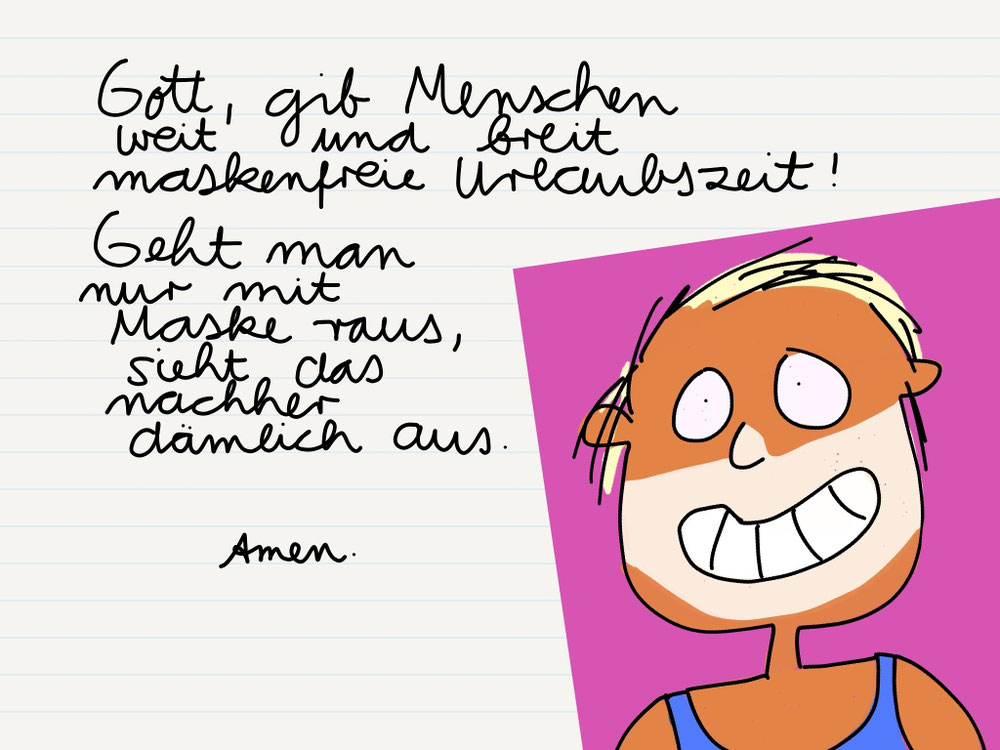 Gott, gib Menschen
weit und breit
maskenfreie Urlaubszeit!
Geht man
nur mit
Maske raus,
sieht das
nachher
dämlich aus.
Amen.